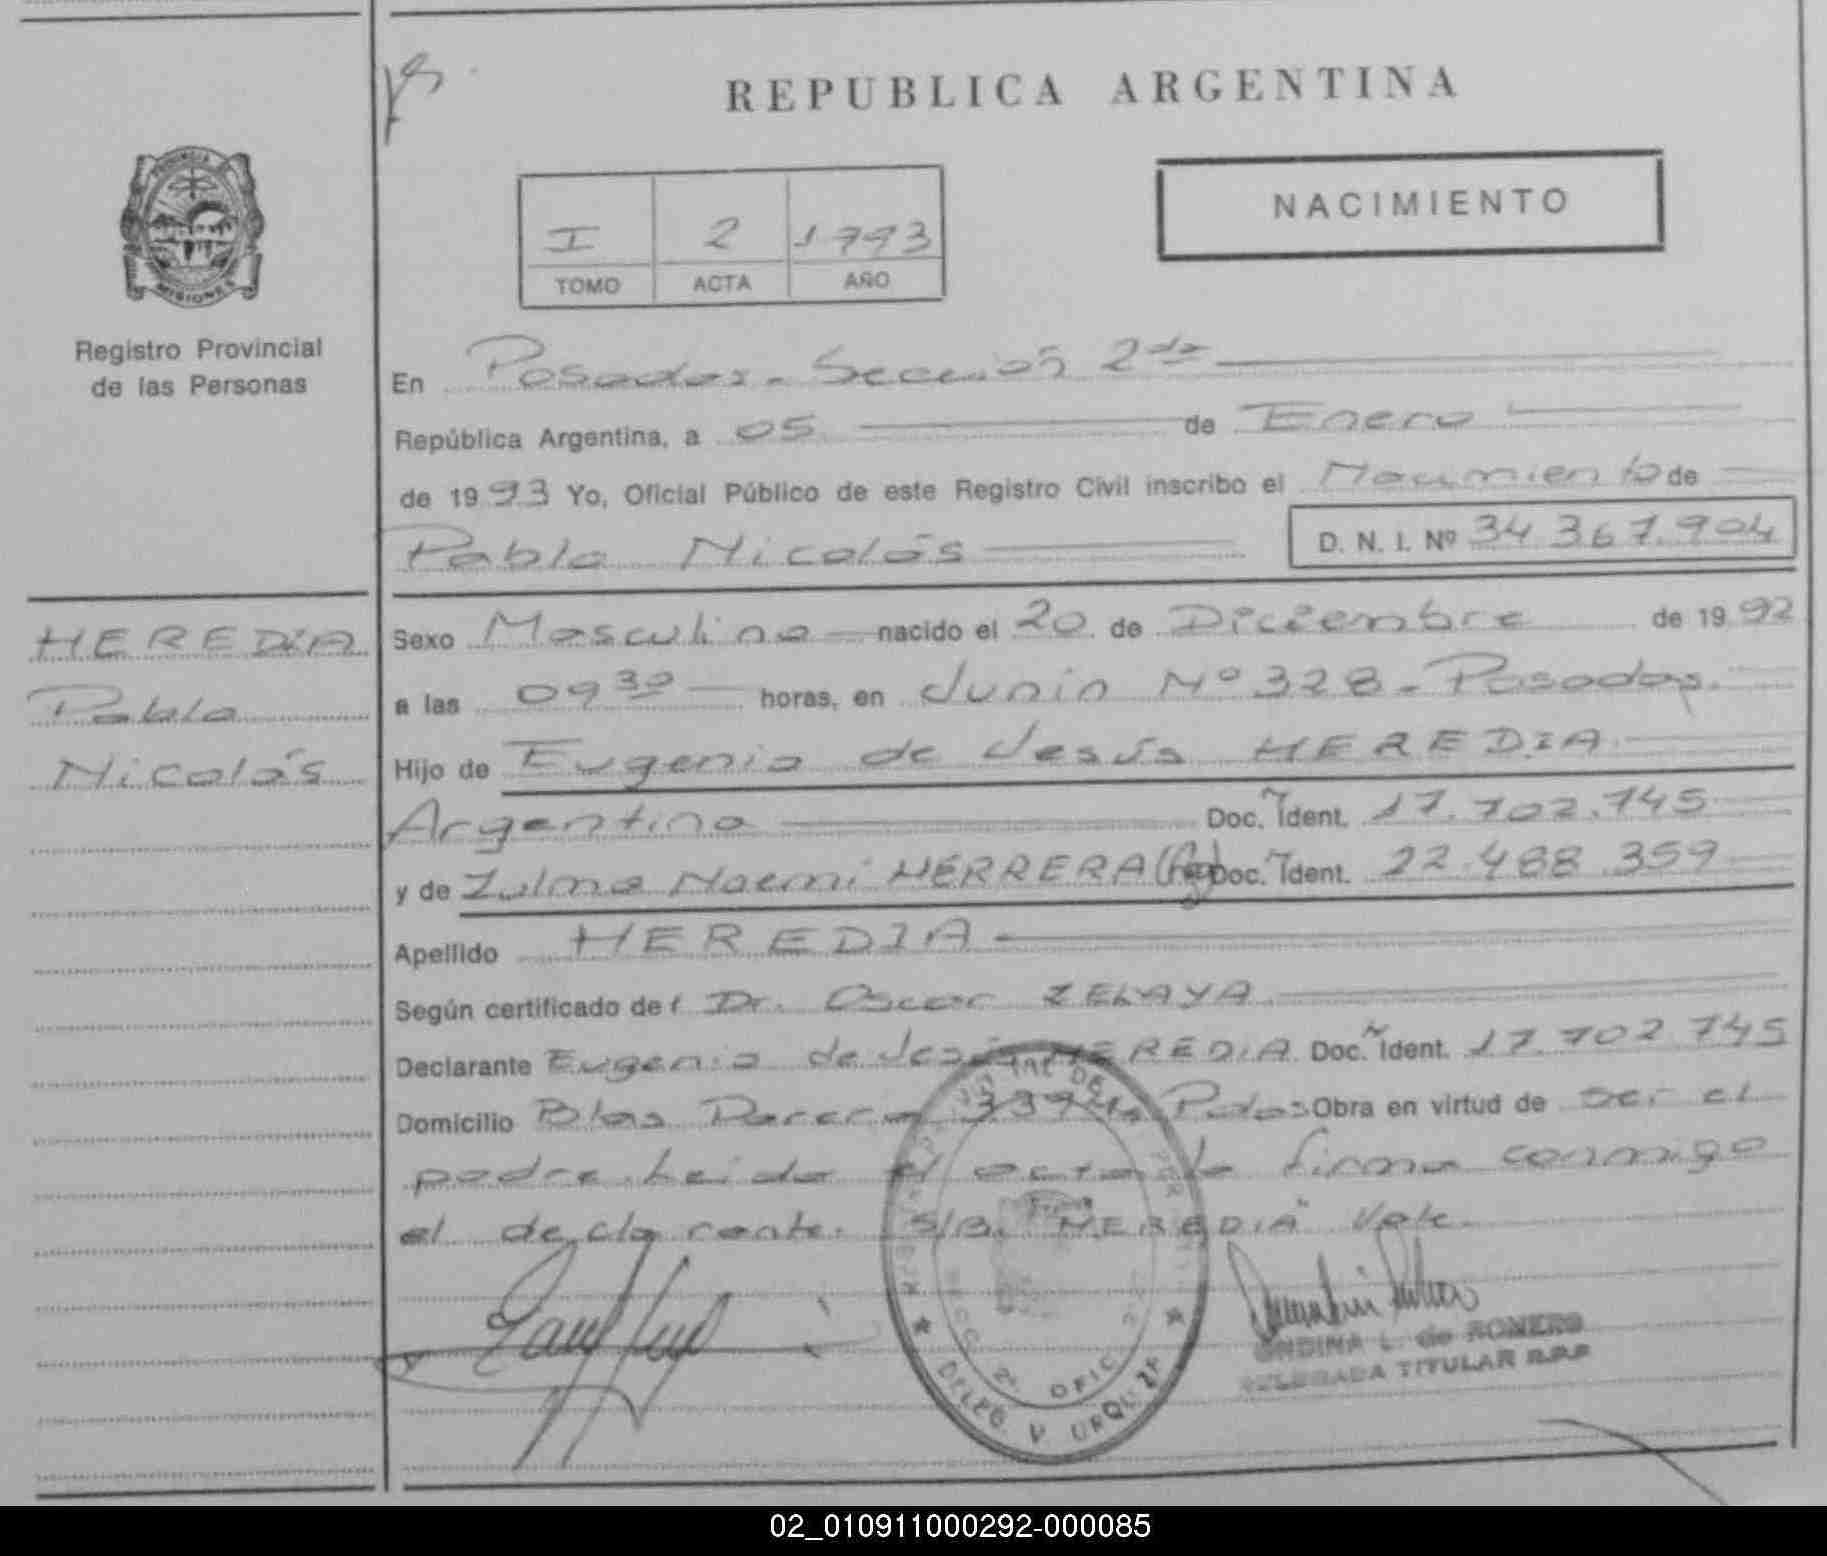 REPUBLICA ARGENTINA
NACIMIENTO
I 2 1993
TOMO ACTA AÑO
PROVINCIA
MISIONES
Registro Provincial
de las Personas
En Posadas - Sección 2da
República Argentina, a 05 de Enero
de 1993 Yo, Oficial Público de este Registro Civil inscribo el Nacimiento de
Pablo Nicolás D. N. I. Nº 34.367.904
HEREDIA
Pablo
Nicolás
Sexo Masculino nacido el 20 de Diciembre de 1992
a las 09 30 horas, en Junin Nº 328 - Posadas.
Hijo de Eugenio de Jesús HEREDIA
Argentino Doc. Ident. 17.702.745
y de Zulma Noemi HERRERA (Arg) Doc. Ident. 22.488.359
Apellido HEREDIA
Según certificado de: Dr. Oscar ZELAYA
Declarante Eugenio de Jesús HEREDIA Doc. Ident. 17.702.745
Domicilio Blas Parera 3394 Pdas Obra en virtud de ser el
padre. Leida el acta la firma conmigo
el declarante. S/B. "HEREDIA" Vale.
ONDINA L. de ROMERO
DELEGADA TITULAR R.P.P
SECC. 2ª OFIC. 2
DELEG. V. URQUIZA
02_010911000292-000085